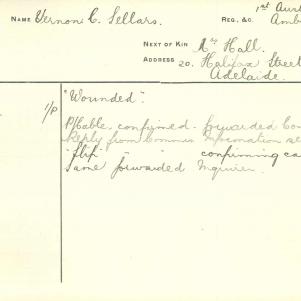 NAME Vernon C. Sellars. REG. &C. 1st Aust
Amb
NEXT OF KIN Mrs Hall.
ADDRESS 20. Halifax Street
Adelaide.
1/P "Wounded".
P/Cable confirmed. forwarded Con
Reply from Commrs Information se
" " confirming ca
Same forwarded Inquirer.